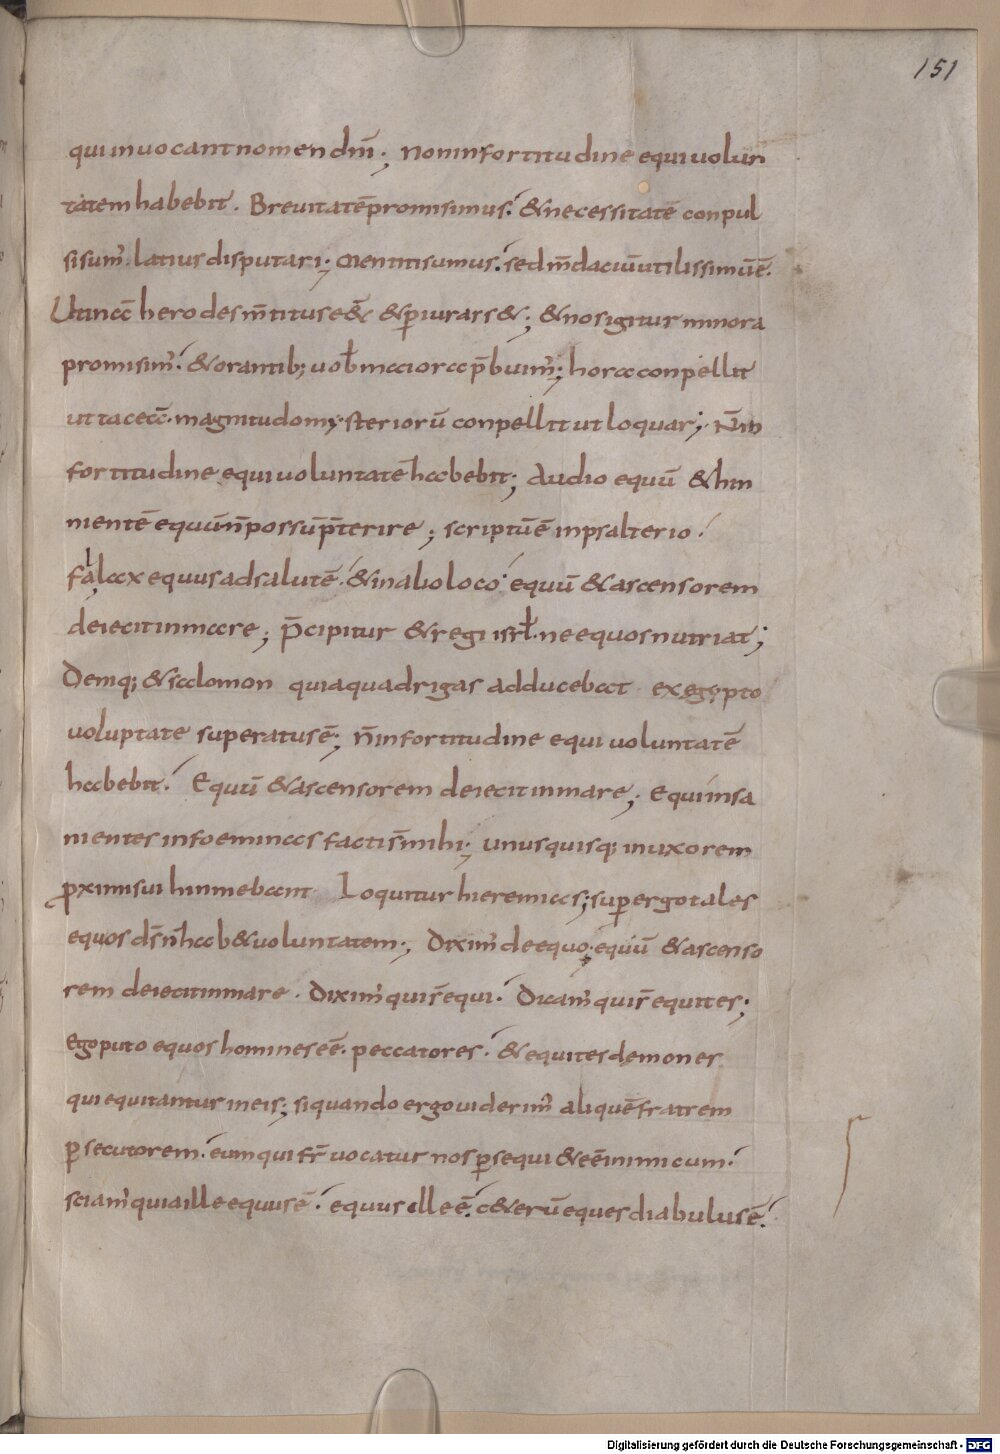 151
qui inuocant nomen dn̄i; Non in fortitudine equi uolun
tatem habebit. Breuitatē promisimus; & necessitatē conpul
si sum' latius disputari; Mentiti sumus; sed m̄daciū utilissimū ē.
Utinā herodes m̄titus eēt & p̱iurass&; & nos igitur minora
promisim'; & orantib; uob̄ maiora p̄buim'; hora conpellit
ut taceā. magnitudo mysteriorū conpellit ut loquar; Nō in
fortitudine equi uoluntatē habebit; Audio equū & hin
nientē equū n̄ possū p̄terire; scriptū ē in psalterio;
falax equus ad salutē; & in alio loco equū & ascensorem
deiecit in mare; p̄cipitur & regi isrl̄ ne equos nutriat;
Deniq; & salomon quia quadrigas adducebat ex egypto
uoluptate superatus ē; n̄ in fortitudine equi uoluntatē
habebit; Equū & ascensorem deiecit in mare; Equi insa
nientes in foeminas facti s̄ mihi; unusquisq; in uxorem
p̱ximi sui hinniebant Loquitur hieremias; sup̱ ergo tales
equos dn̄s n̄ hab& uoluntatem; Dixim' de equo; equū & ascenso
rem deiecit in mare. Dixim' qui s̄ equi; Dicam' qui s̄ equites;
Ego puto equos homines eē. peccatores; & equites demones
qui equitantur in eis; si quando ergo uiderim' aliquē fratrem
p̱secutorem; eum qui fr̄ uocatur nos p̱sequi & eē inimicum;
sciam' quia ille equus ē; equus ille ē; c&erū eques diabulus ē;
Digitalisierung gefördert durch die Deutsche Forschungsgemeinschaft - DFG